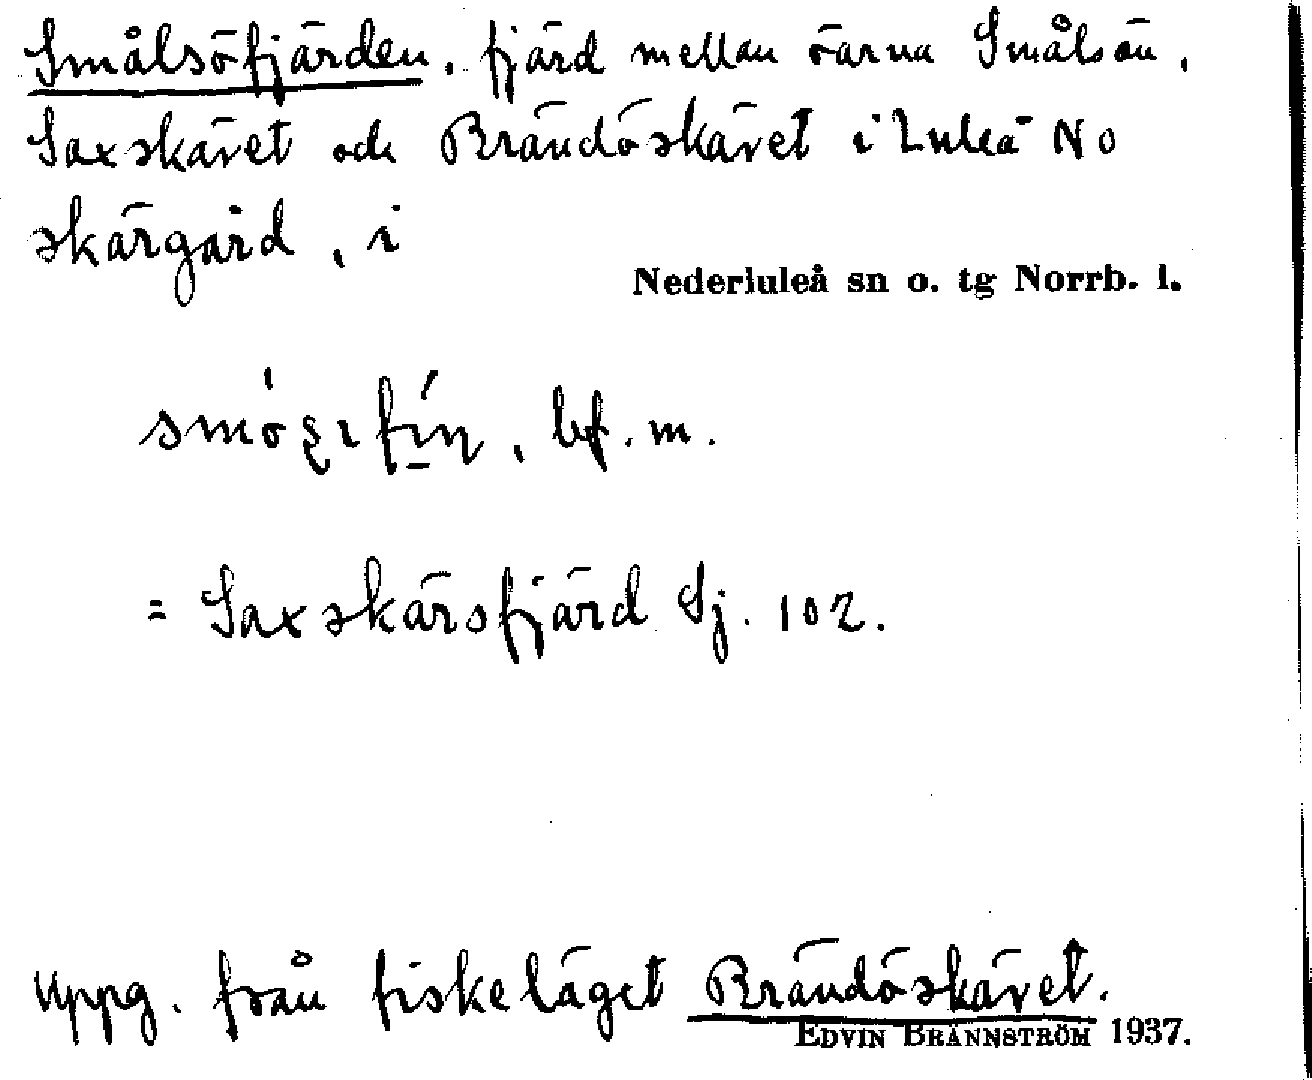 Smålsöfjärden, fjärd mellan öarna Smålsön,
Saxskäret och Brändöskäret i Luleå NO
skärgård, i
Nederluleå sn o. tg Norrb. l.
bf. m.
= Saxskärsfjärd Sj. 102.
Uppg. från fiskeläget Brändöskäret.
EDVIN BRÄNNSTRÖM 1937.